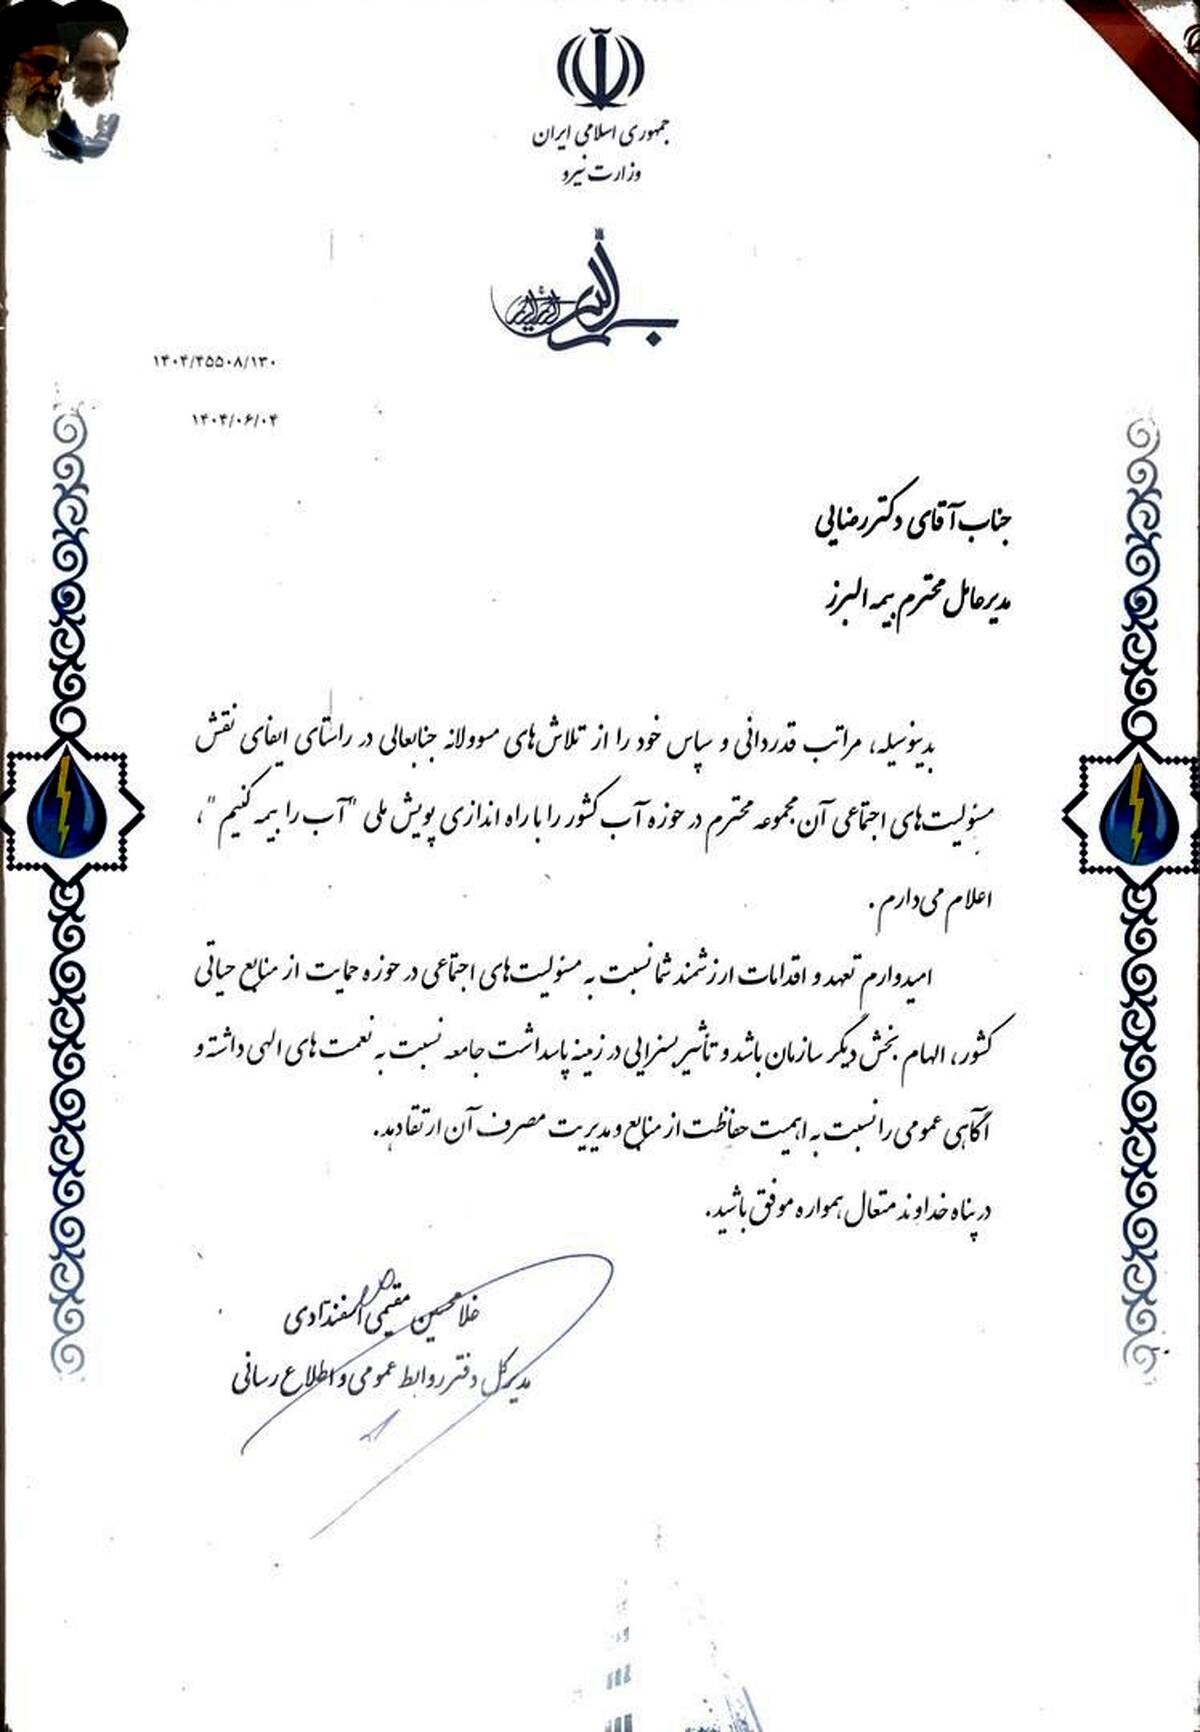 جمهوری اسلامی ایران
وزارت نیرو
بسم الله الرحمن الرحیم
۱۴۰۴/۴۵۵۰۸/۱۳۰
۱۴۰۴/۰۶/۰۴
جناب آقای دکتر رضایی
مدیرعامل محترم بیمه البرز
بدینوسیله، مراتب قدردانی و سپاس خود را از تلاش‌های مسوولانه جنابعالی در راستای ایفای نقش
مسئولیت‌های اجتماعی آن مجموعه محترم در حوزه آب کشور را با راه اندازی پویش ملی "آب را بیمه کنیم"،
اعلام می‌دارم.
امیدوارم تعهد و اقدامات ارزشمند شما نسبت به مسئولیت‌های اجتماعی در حوزه حمایت از منابع حیاتی
کشور، الهام بخش دیگر سازمان باشد و تأثیر بسزایی در زمینه پاسداشت جامعه نسبت به نعمت های الهی داشته و
آگاهی عمومی را نسبت به اهمیت حفاظت از منابع و مدیریت مصرف آن ارتقا دهد.
در پناه خداوند متعال همواره موفق باشید.
غلامحسین مقیمی اسفندآبادی
مدیرکل دفتر روابط عمومی و اطلاع رسانی